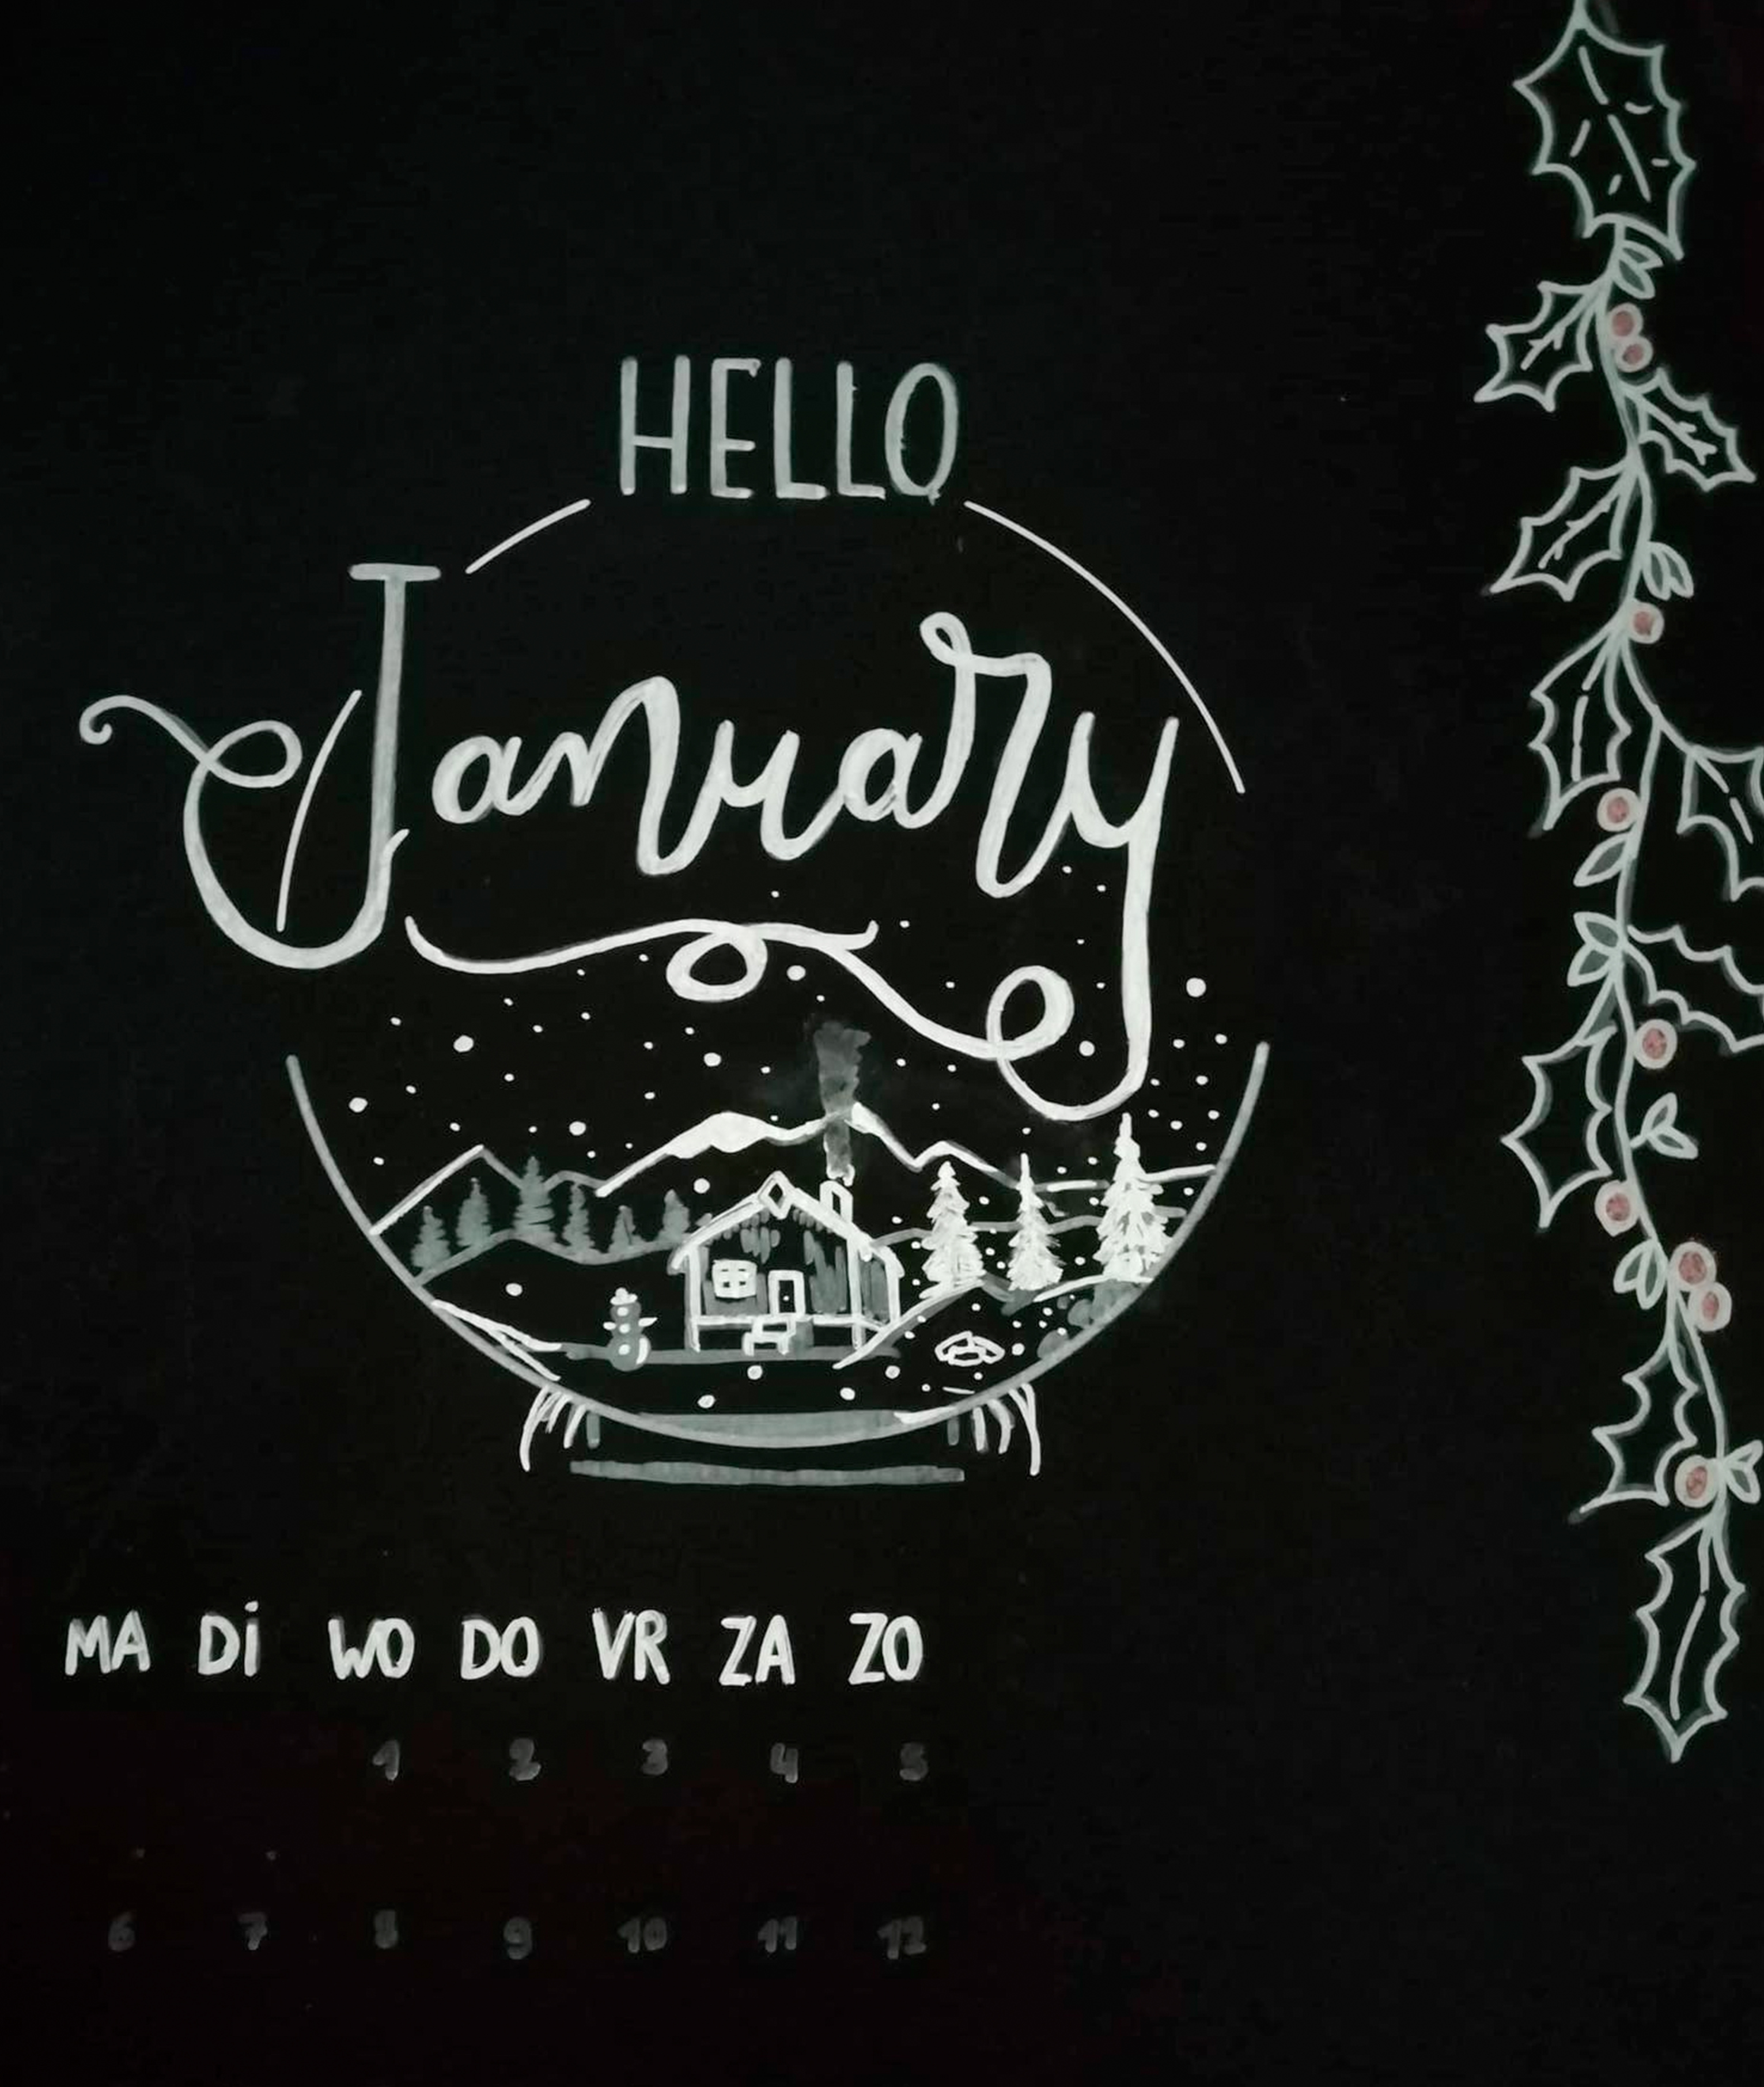 HELLO
January
MA Di WO DO VR ZA ZO
1 2 3 4 5
6 7 8 9 10 11 12